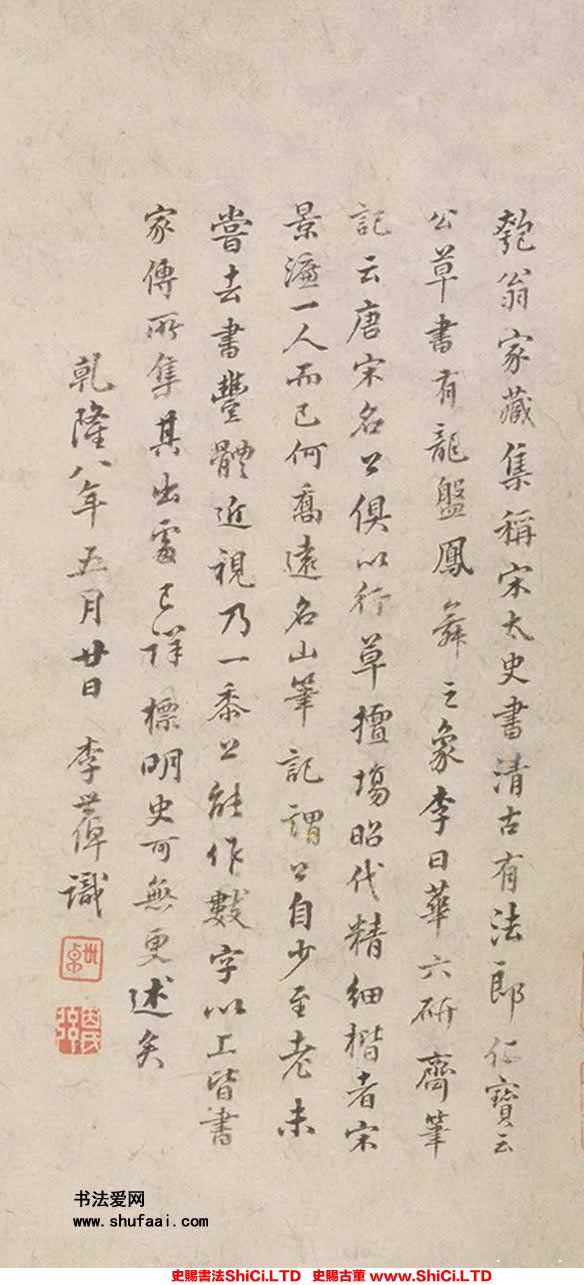 匏翁家藏集稱宋太史書清古有法郎仁寶云
公草書有龍盤鳳舞之象李日華六研齋筆
記云唐宋名公俱以行草擅場昭代精細楷者宋
景濂一人而已何喬遠名山筆記謂公自少至老未
嘗去書豐體近視乃一黍公能作數字以上皆書
家傳所集其出處已詳標明史可無更述矣
乾隆八年五月廿日 李世倬識
书法爱网
www.shufaai.com
史賜書法ShiCi.LTD 史賜古董 www.ShiCi.LTD